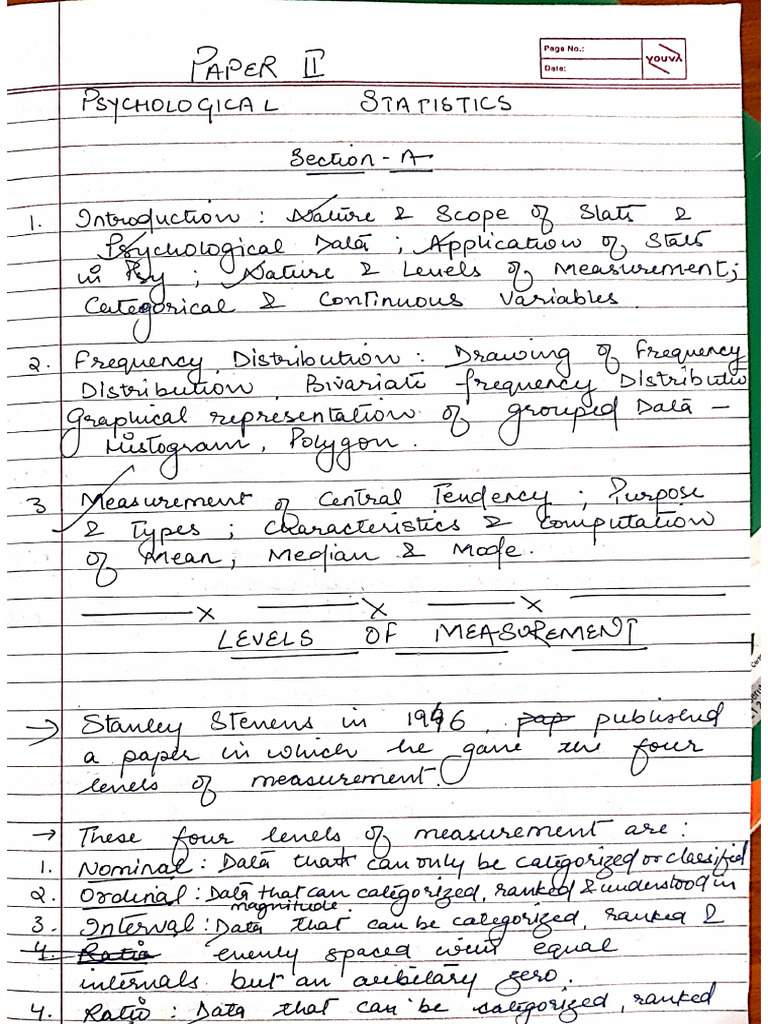 PAPER II
Page No.:
Date:
YOUVA
PSYCHOLOGICAL STATISTICS
Section - A
1. Introduction : Nature & Scope of Stats &
Psychological Data ; Application of Stats
in Psy ; Nature & Levels of Measurement;
Categorical & Continuous Variables.
2. Frequency Distribution : Drawing of Frequency
Distribution, Bivariate frequency Distributio
Graphical representation of grouped Data -
Histogram, Polygon.
3 Measurement of Central Tendency ; Purpose
& Types ; Characteristics & Computation
of Mean, Median & Mode.
x x x
LEVELS OF MEASUREMENT
→ Stanley Stevens in 1946, pap published
a paper in which he gave the four
levels of measurement.
→ These four levels of measurement are :
1. Nominal : Data that can only be categorized or classified
2. Ordinal : Data that can categorized, ranked & understood in
magnitude.
3. Interval : Data that can be categorized, ranked &
4. Ratio evenly spaced with equal
intervals but an aribitary zero.
4. Ratio : Data that can be categorized, ranked